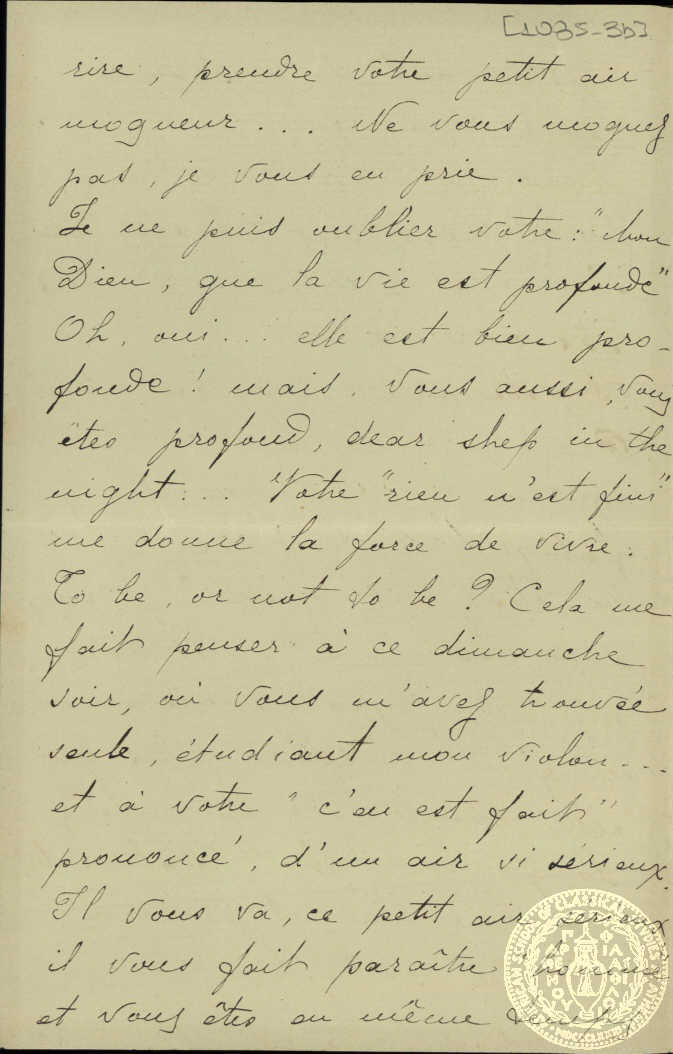 [1035-3b]
rire, prendre votre petit air
moqueur... Ne vous moquez
pas, je vous en prie.
Je ne puis oublier votre: "Mon
Dieu, que la vie est profonde"
Oh, oui... elle est bien pro-
fonde! mais, vous aussi, vous
êtes profond, dear ship in the
night... Votre "rien n'est fini"
me donne la force de vivre.
To be, or not to be? Cela me
fait penser à ce dimanche
soir, où vous m'avez trouvée
seule, étudiant mon violon...
et à votre "c'en est fait"
prononcé, d'un air si sérieux.
Il vous va, ce petit air sérieux
il vous fait paraître "homme"
et vous êtes en même temps